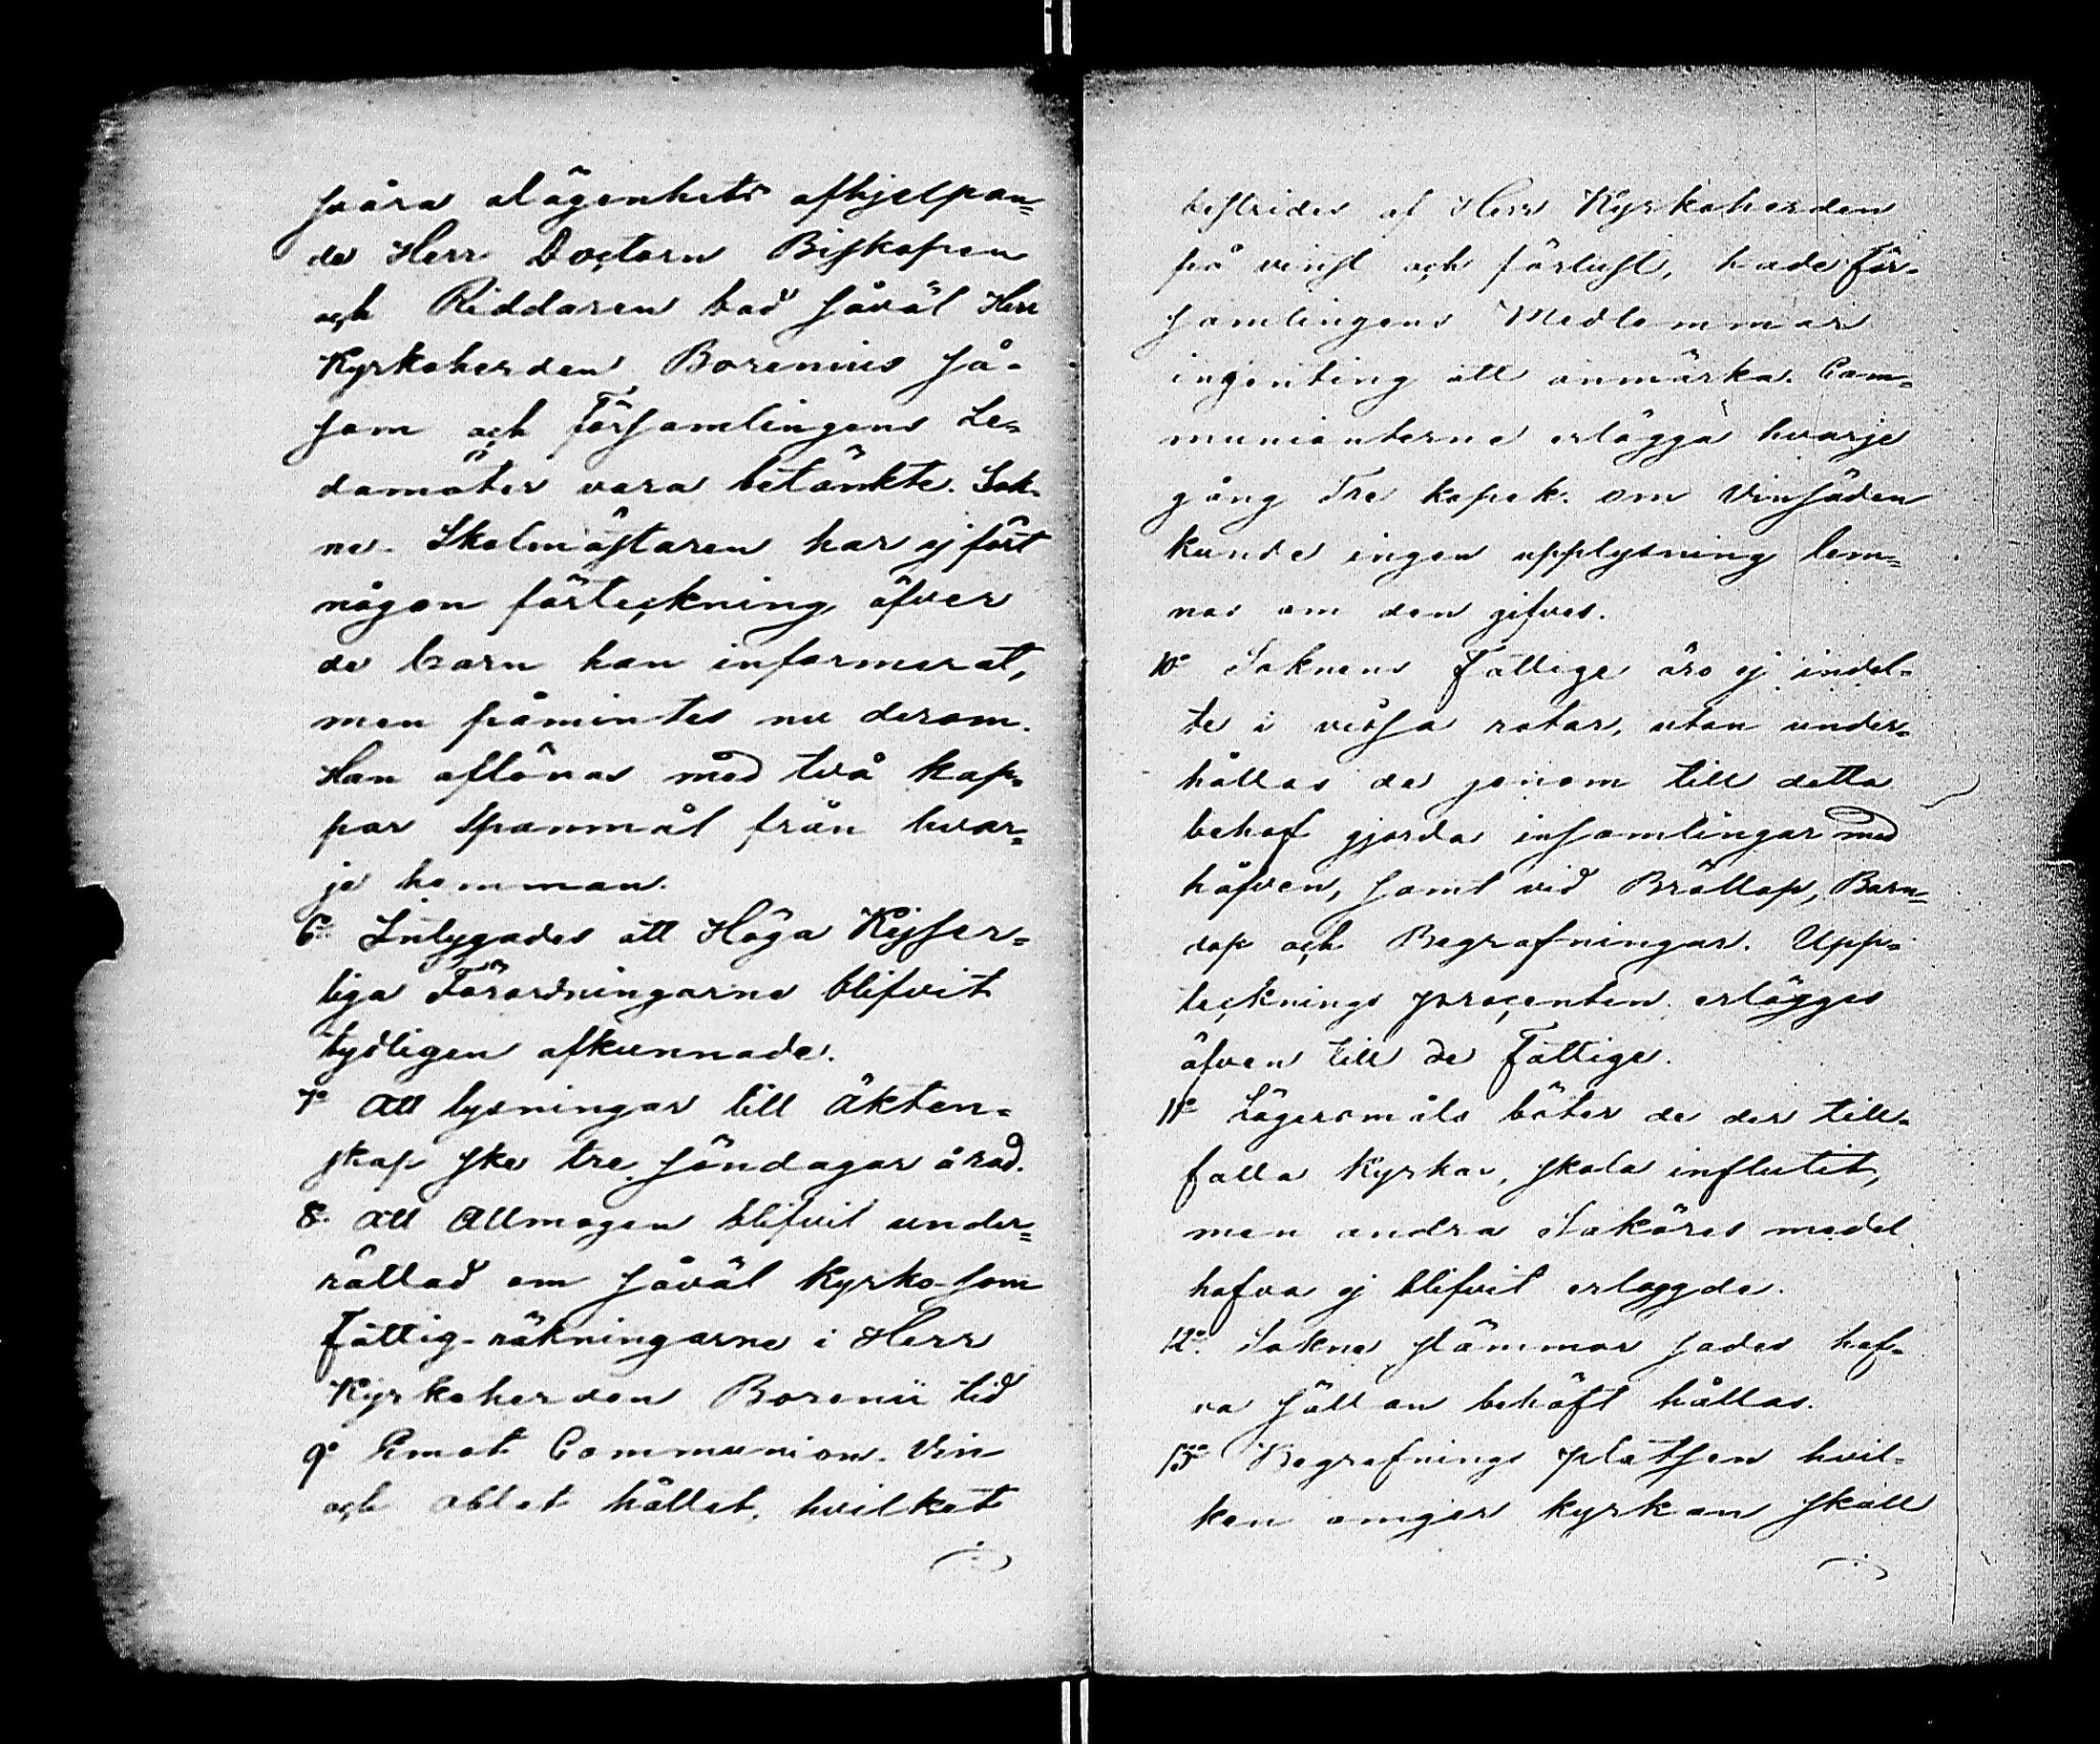 svåra olägenhets afhjelpan=
de Herr Doctorn Biskopen
och Riddaren bad såväl Herr
Kyrkoherden Borenius så-
som och Församlingens Le=
damöter vara betänkte. Sok-
ne-Skolmästaren har ej fört
någon förteckning öfver
de barn han informerat,
men påmintes nu derom.
Han aflönas med två kap=
par Spanmål från hvar=
je hemman.
6o Intygades att Höga Kejser=
liga Förordningarne blifvit
tydligen afkunnade.
7o Att lysningar till Äkten=
skap ske tre söndagar å rad.
8o Att Allmogen blifvit under=
rättad om såväl Kyrko-som
Fattig-räkningarne i Herr
Kyrkoherden Borenii tid
9o Emot Communion-Vin
och oblat hållet, hvilket
bestrides af Herr Kyrkoherden
på vinst och förlust, hade För-
samlingens Medlemmar
ingenting att anmärka. Com=
munionterne erlägga hvarje
gång Tre kopek. om Vinsäden
kunde ingen upplysning lem=
nas om den gifves.
10o Soknens Fattige äro ej indel-
te i vissa rotar, utan under=
hållas de genom till detta
behof gjorda insamlingar med
håfven, samt vid Bröllop, Barn-
dop och Begrafningar. Upp-
tecknings procenten erlägges
äfven till de Fattige.
11o Lägersmåls böter de der till-
falla Kyrkan, skola influtit,
men andra Saköres medel
hafva ej blifvit erlaggde.
12o Sokne stämmor sades haf-
va sällan behöft hållas.
13o Begrafnings platsen hvil-
ken omger kyrkan skall